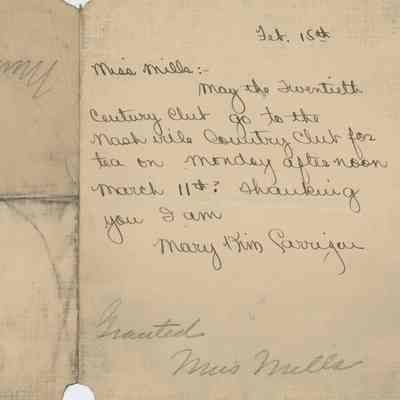 Feb. 15th
Miss Mills:-
May the Twentieth
Century Club go to the
Nashville Country Club for
tea on Monday afternoon
March 11th? Thanking
you I am
Mary Kim
Granted
Miss Mills